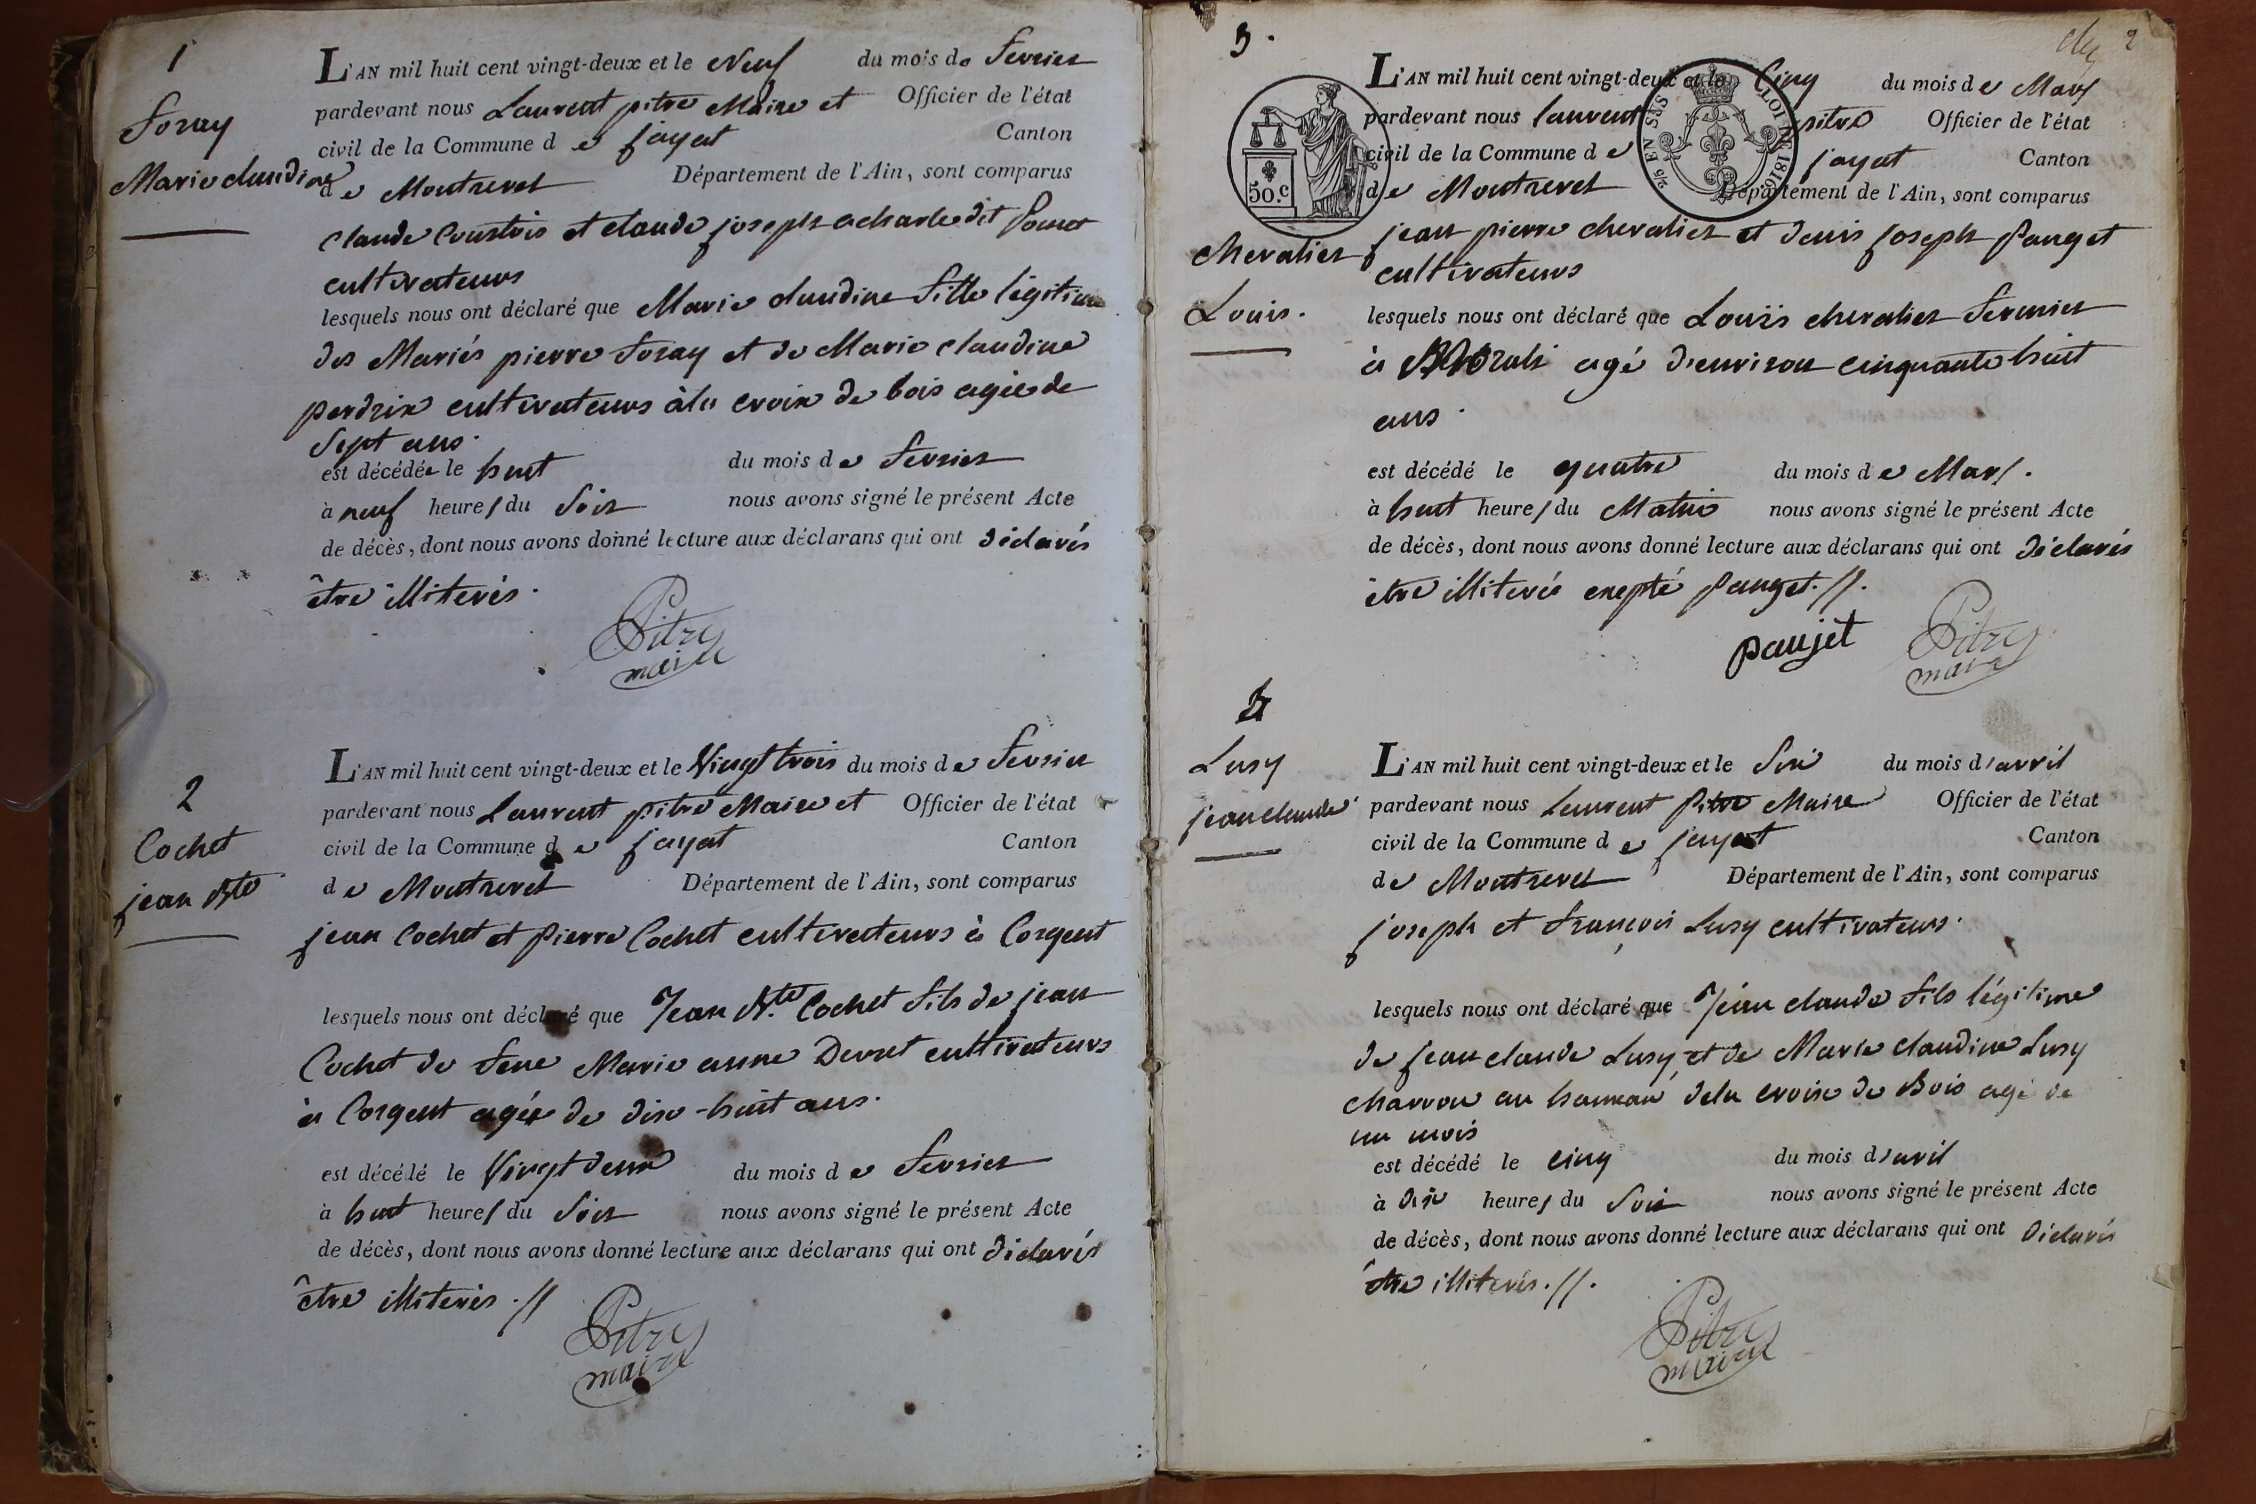 1
Foray
Marie claudine
L'AN mil huit cent vingt-deux et le Neuf du mois de fevrier
pardevant nous Laurent pitre Maire et Officier de l'état
civil de la Commune de jayat Canton
de Montrevel Département de l'Ain, sont comparus
claude Courtois et claude joseph acharle dit
cultivateurs
lesquels nous ont déclaré que Marie claudine fille légitime
des Mariés pierre foray et de Marie claudine
perdrix cultivateurs à la croix de bois agée de
sept ans.
est décédée le huit du mois de fevrier
à neuf heures du soir nous avons signé le présent Acte
de décès, dont nous avons donné lecture aux déclarans qui ont déclarés
être illiterés.
Pitre
maire
2
Cochet
jean Bte
L'AN mil huit cent vingt-deux et le Vingt trois du mois de fevrier
pardevant nous Laurent pitre Maire et Officier de l'état
civil de la Commune de jayat Canton
de Montrevel Département de l'Ain, sont comparus
jean Cochet et pierre Cochet cultivateurs à Corgent
lesquels nous ont déclaré que Jean Bte Cochet fils de jean
Cochet de feue Marie anne Devret cultivateurs
à Corgent agée de dix-huit ans.
est décédé le Vingt deux du mois de fevrier
à huit heures du soir nous avons signé le présent Acte
de décès, dont nous avons donné lecture aux déclarans qui ont déclarés
être illiterés.//
Pitre
maire
2
3.
50.c
EN SUS
1816
chevalier
Louis.
L'AN mil huit cent vingt-deux et le Cinq du mois de Mars
pardevant nous laurent pitre Officier de l'état
civil de la Commune de jayat Canton
de Montrevel Département de l'Ain, sont comparus
jean pierre chevalier et denis joseph pauget
cultivateurs
lesquels nous ont déclaré que Louis chevalier fermier
à agé d'environ cinquante huit
ans.
est décédé le quatre du mois de Mars.
à huit heures du Matin nous avons signé le présent Acte
de décès, dont nous avons donné lecture aux déclarans qui ont déclarés
être illiterés exepté pauget.//.
paujet
Pitre
maire
4
Lusy
jean claude
L'AN mil huit cent vingt-deux et le Six du mois d'avril
pardevant nous Laurent Pitre Maire Officier de l'état
civil de la Commune de jayat Canton
de Montrevel Département de l'Ain, sont comparus
joseph et françois Lusy cultivateurs.
lesquels nous ont déclaré que Jean claude fils légitime
de jean claude Lusy et de Marie claudine Lusy
charron au hameau dela croix de Bois agé de
un mois
est décédé le cinq du mois d'avril
à dix heures du soir nous avons signé le présent Acte
de décès, dont nous avons donné lecture aux déclarans qui ont déclarés
être illiterés.//.
Pitre
maire